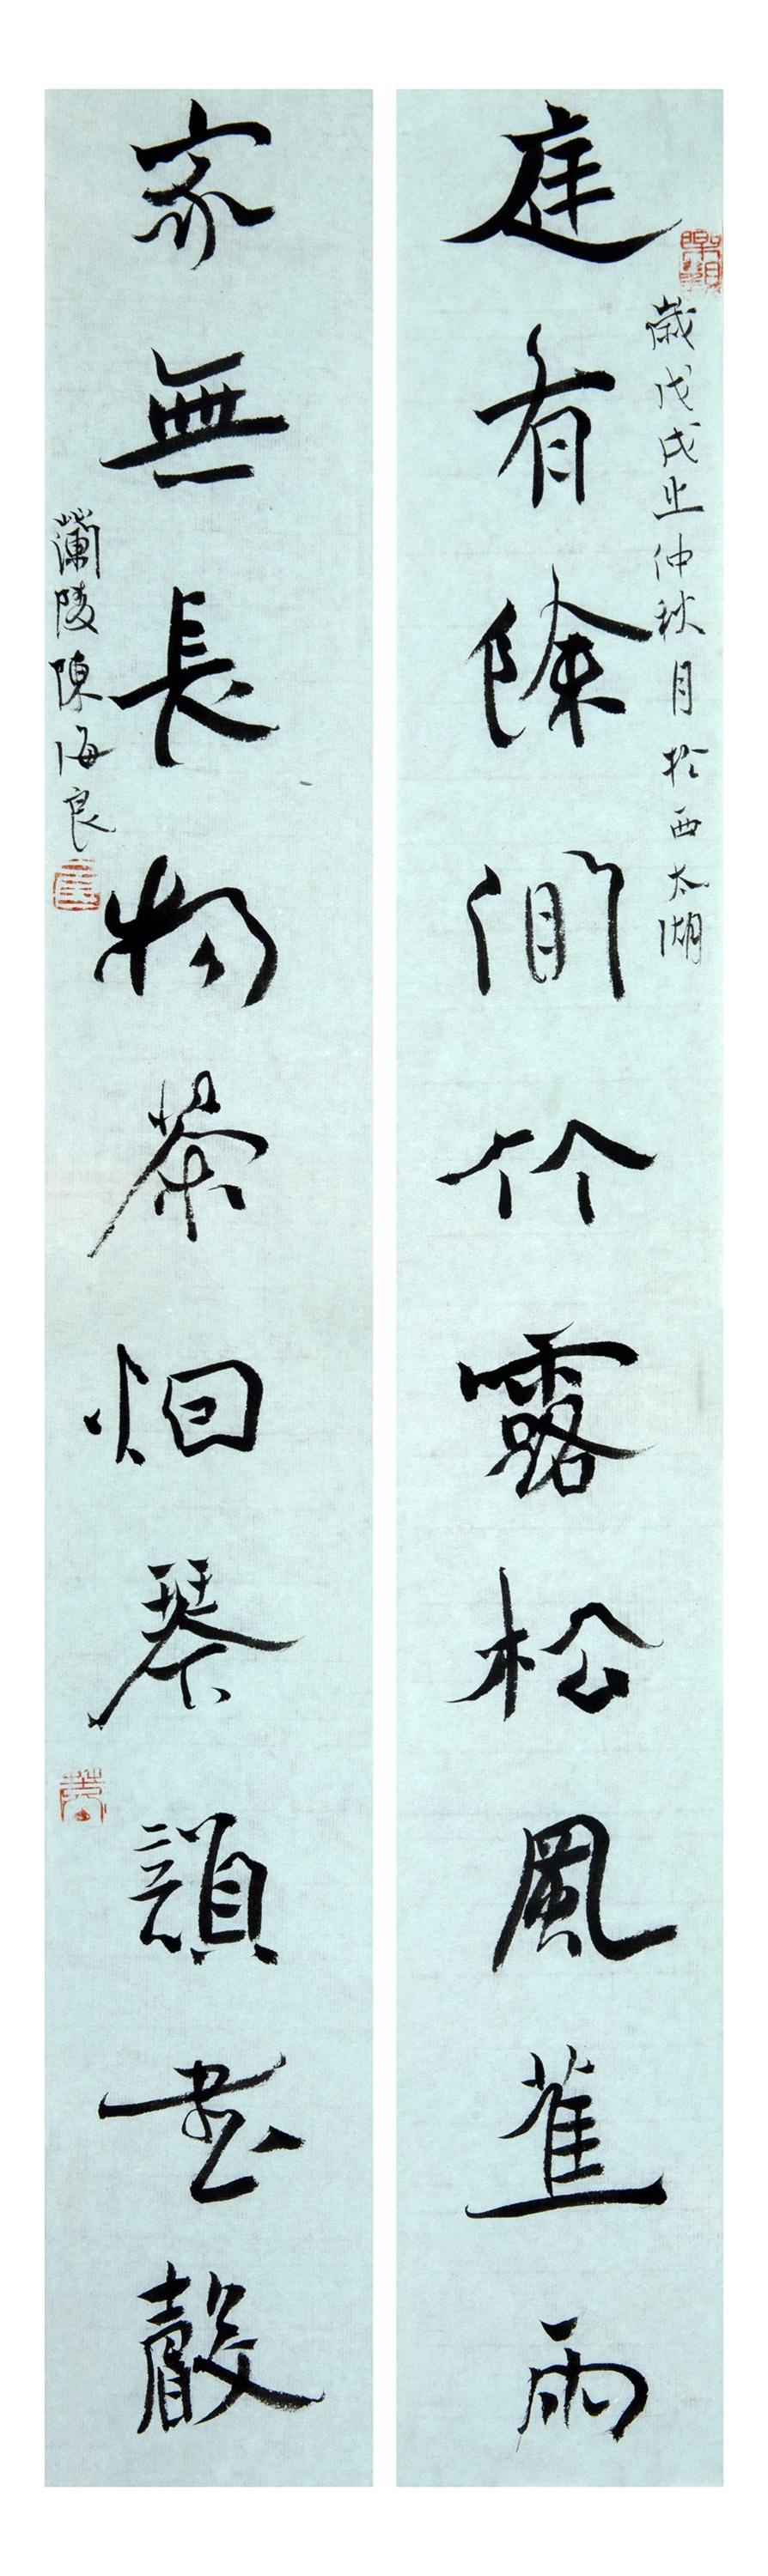 庭有餘閒竹露松風蕉雨
歲戊戌之仲秋月於西太湖
家無長物茶烟琴韻書聲
蘭陵陳海良